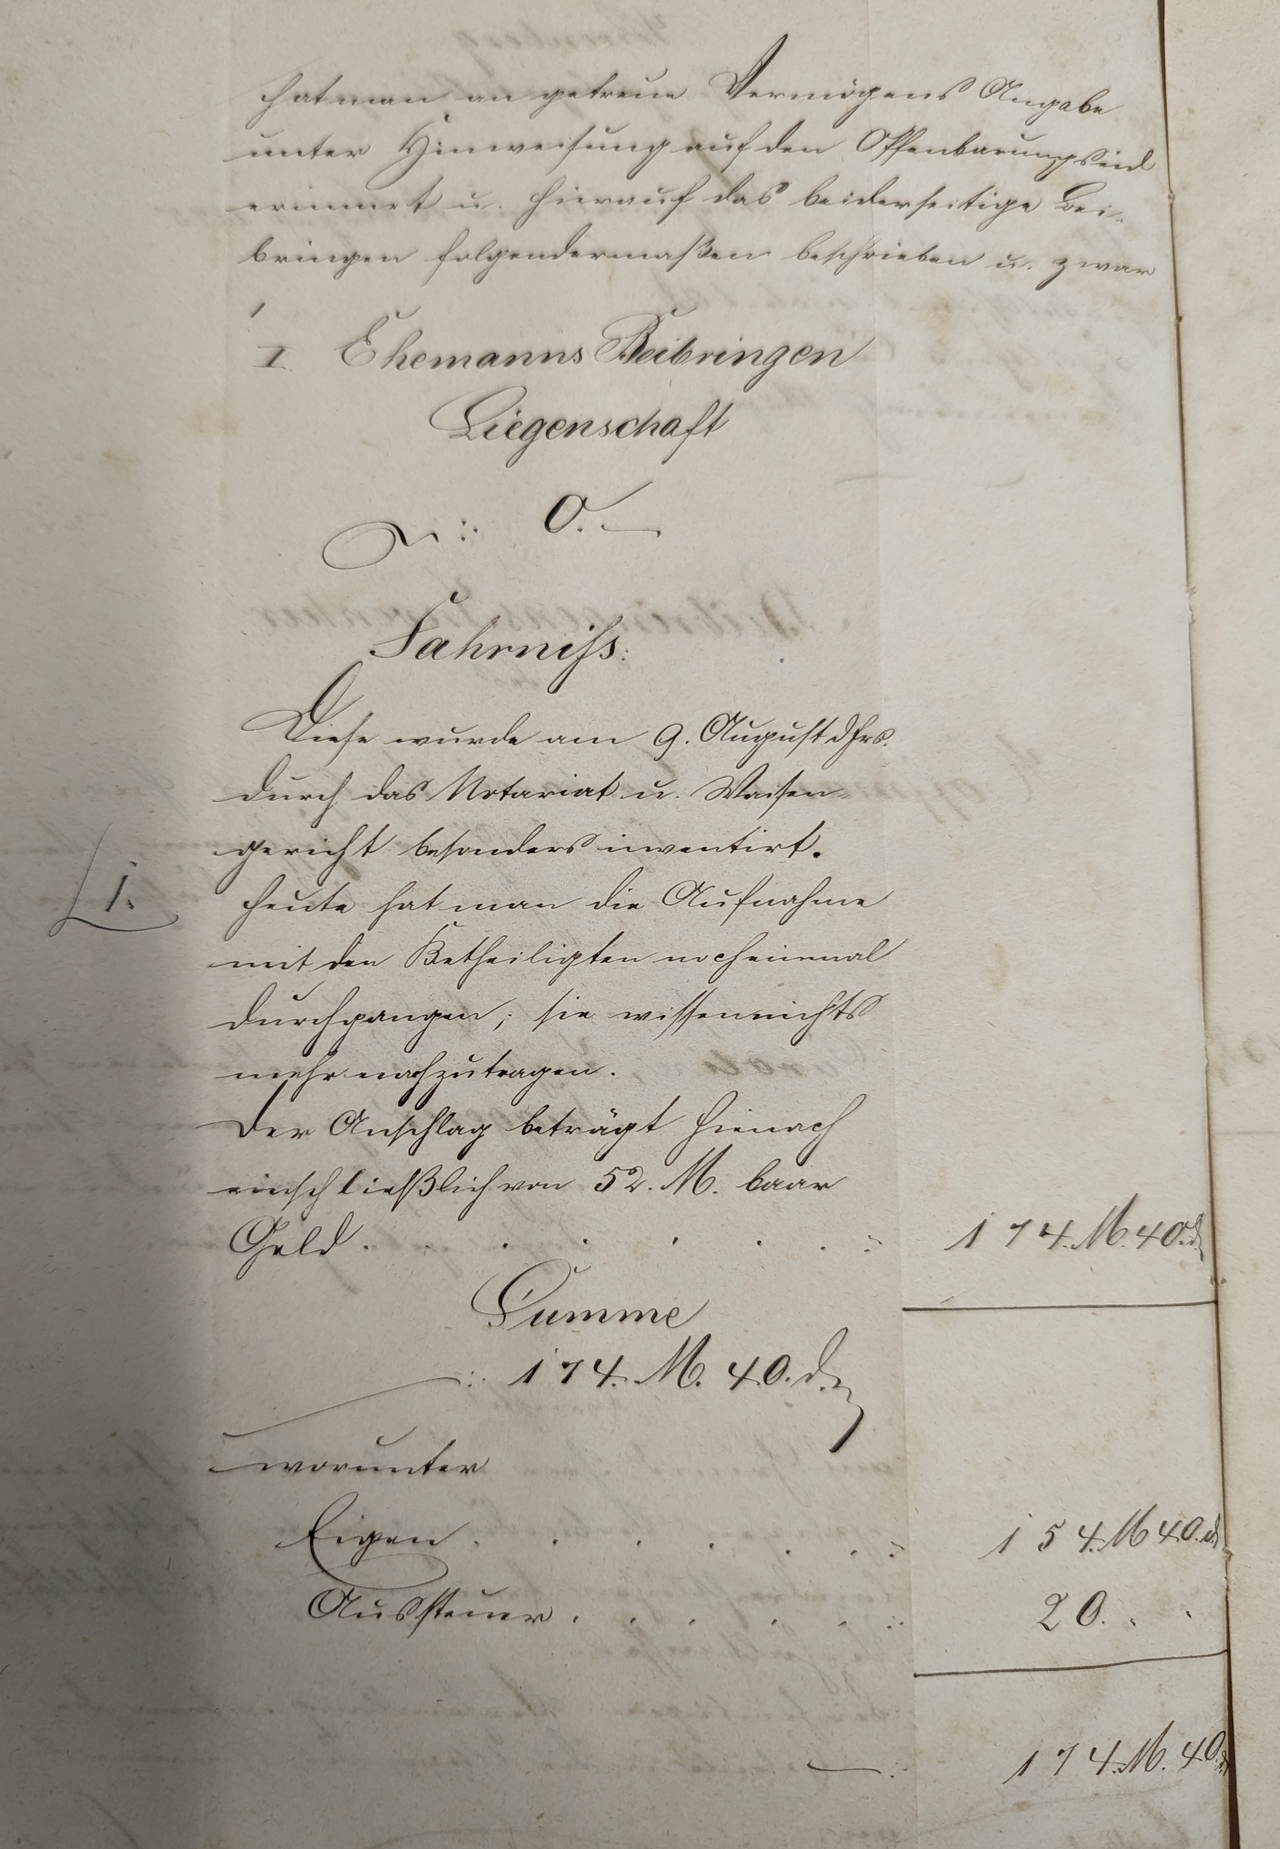 hat man an getreue Vermögens Angabe
unter Hinweisung auf den Offenbarungseid
erinnert u. hierauf das beiderseitige Bei-
bringen folgendermaßen beschrieben u. zwar
I. Ehemanns Beibringen
Liegenschaft
0.
Fahrniss:
Diese wurde am 9. August d. Jrs.
durch das Notariat u. Waisen-
gericht besonders inventirt.
1.
Heute hat man die Aufnahme
mit den Betheiligten nocheinmal
durchgangen; sie wissen nichts
mehr nachzutragen.
Der Anschlag beträgt hienach
einschließlich von 52. M. baar
Geld . . . . . . . 174. M. 40. d.
Summe
174. M. 40. d.
worunter
Eigen . . . . . . . 154. M 40. d.
Aussteuer . . . . . . 20. . .
174. M. 40. d.